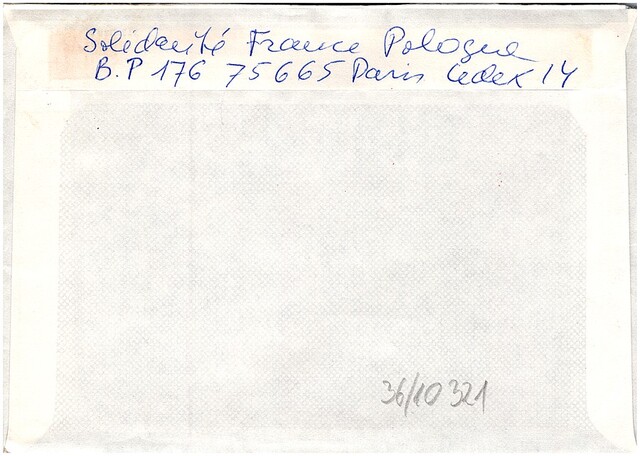 Solidarité France Pologne
B.P 176 75665 Paris Cedex 14
36/10321